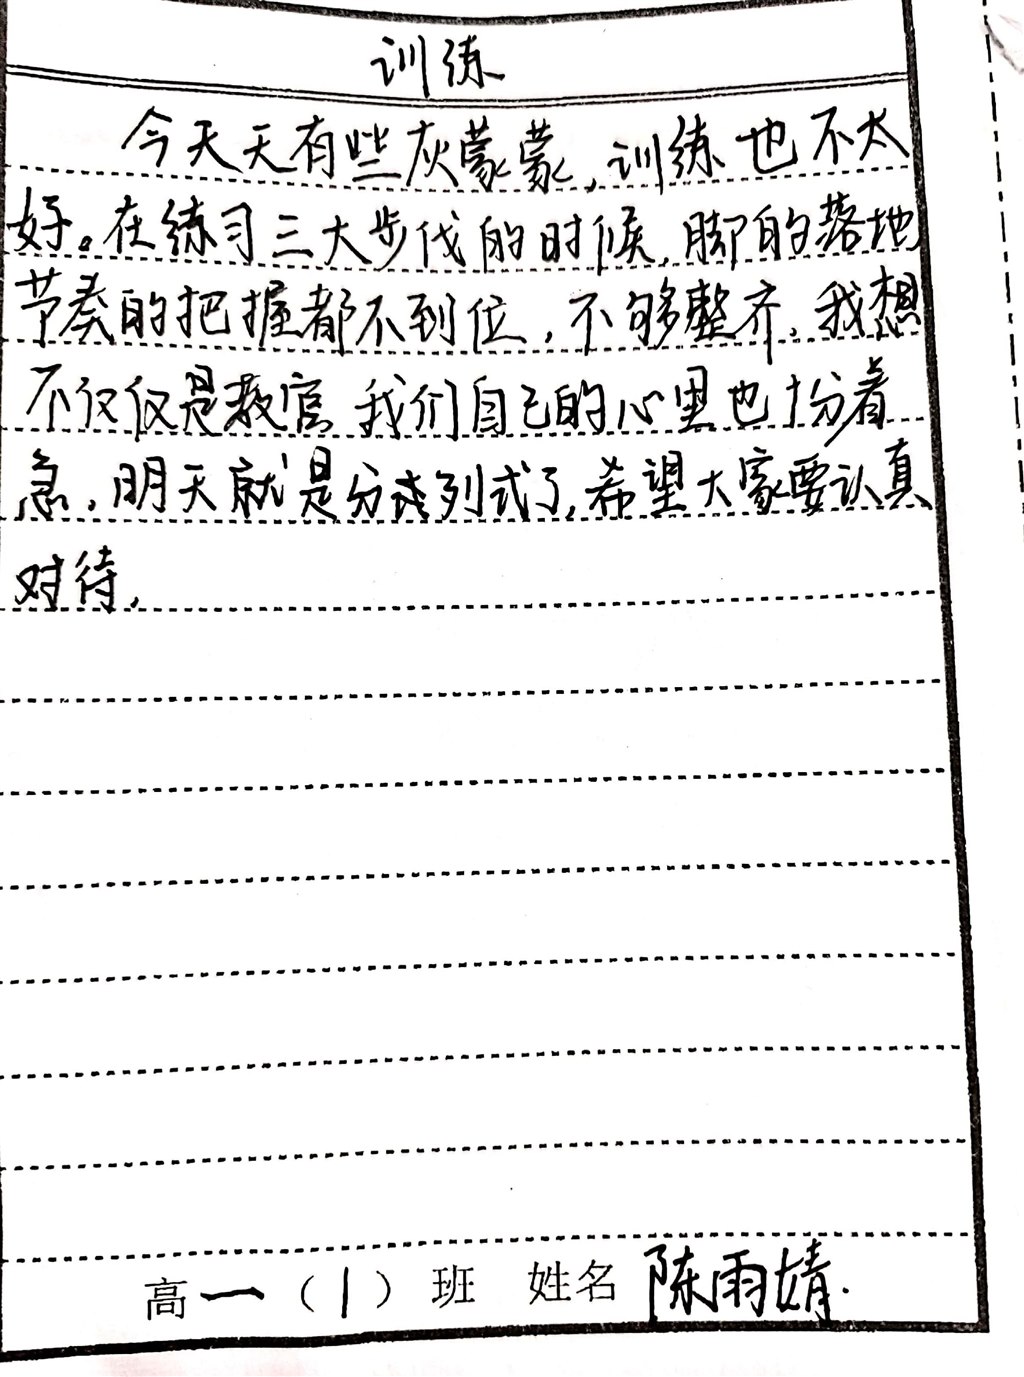 训练
今天天有些灰蒙蒙,训练也不太
好。在练习三大步伐的时候,脚的落地
节奏的把握都不到位,不够整齐。我想
不仅仅是教官 我们自己的心里也十分着
急,明天就是分列式了,希望大家要认真
对待.
高一(1)班 姓名 陈雨婧.